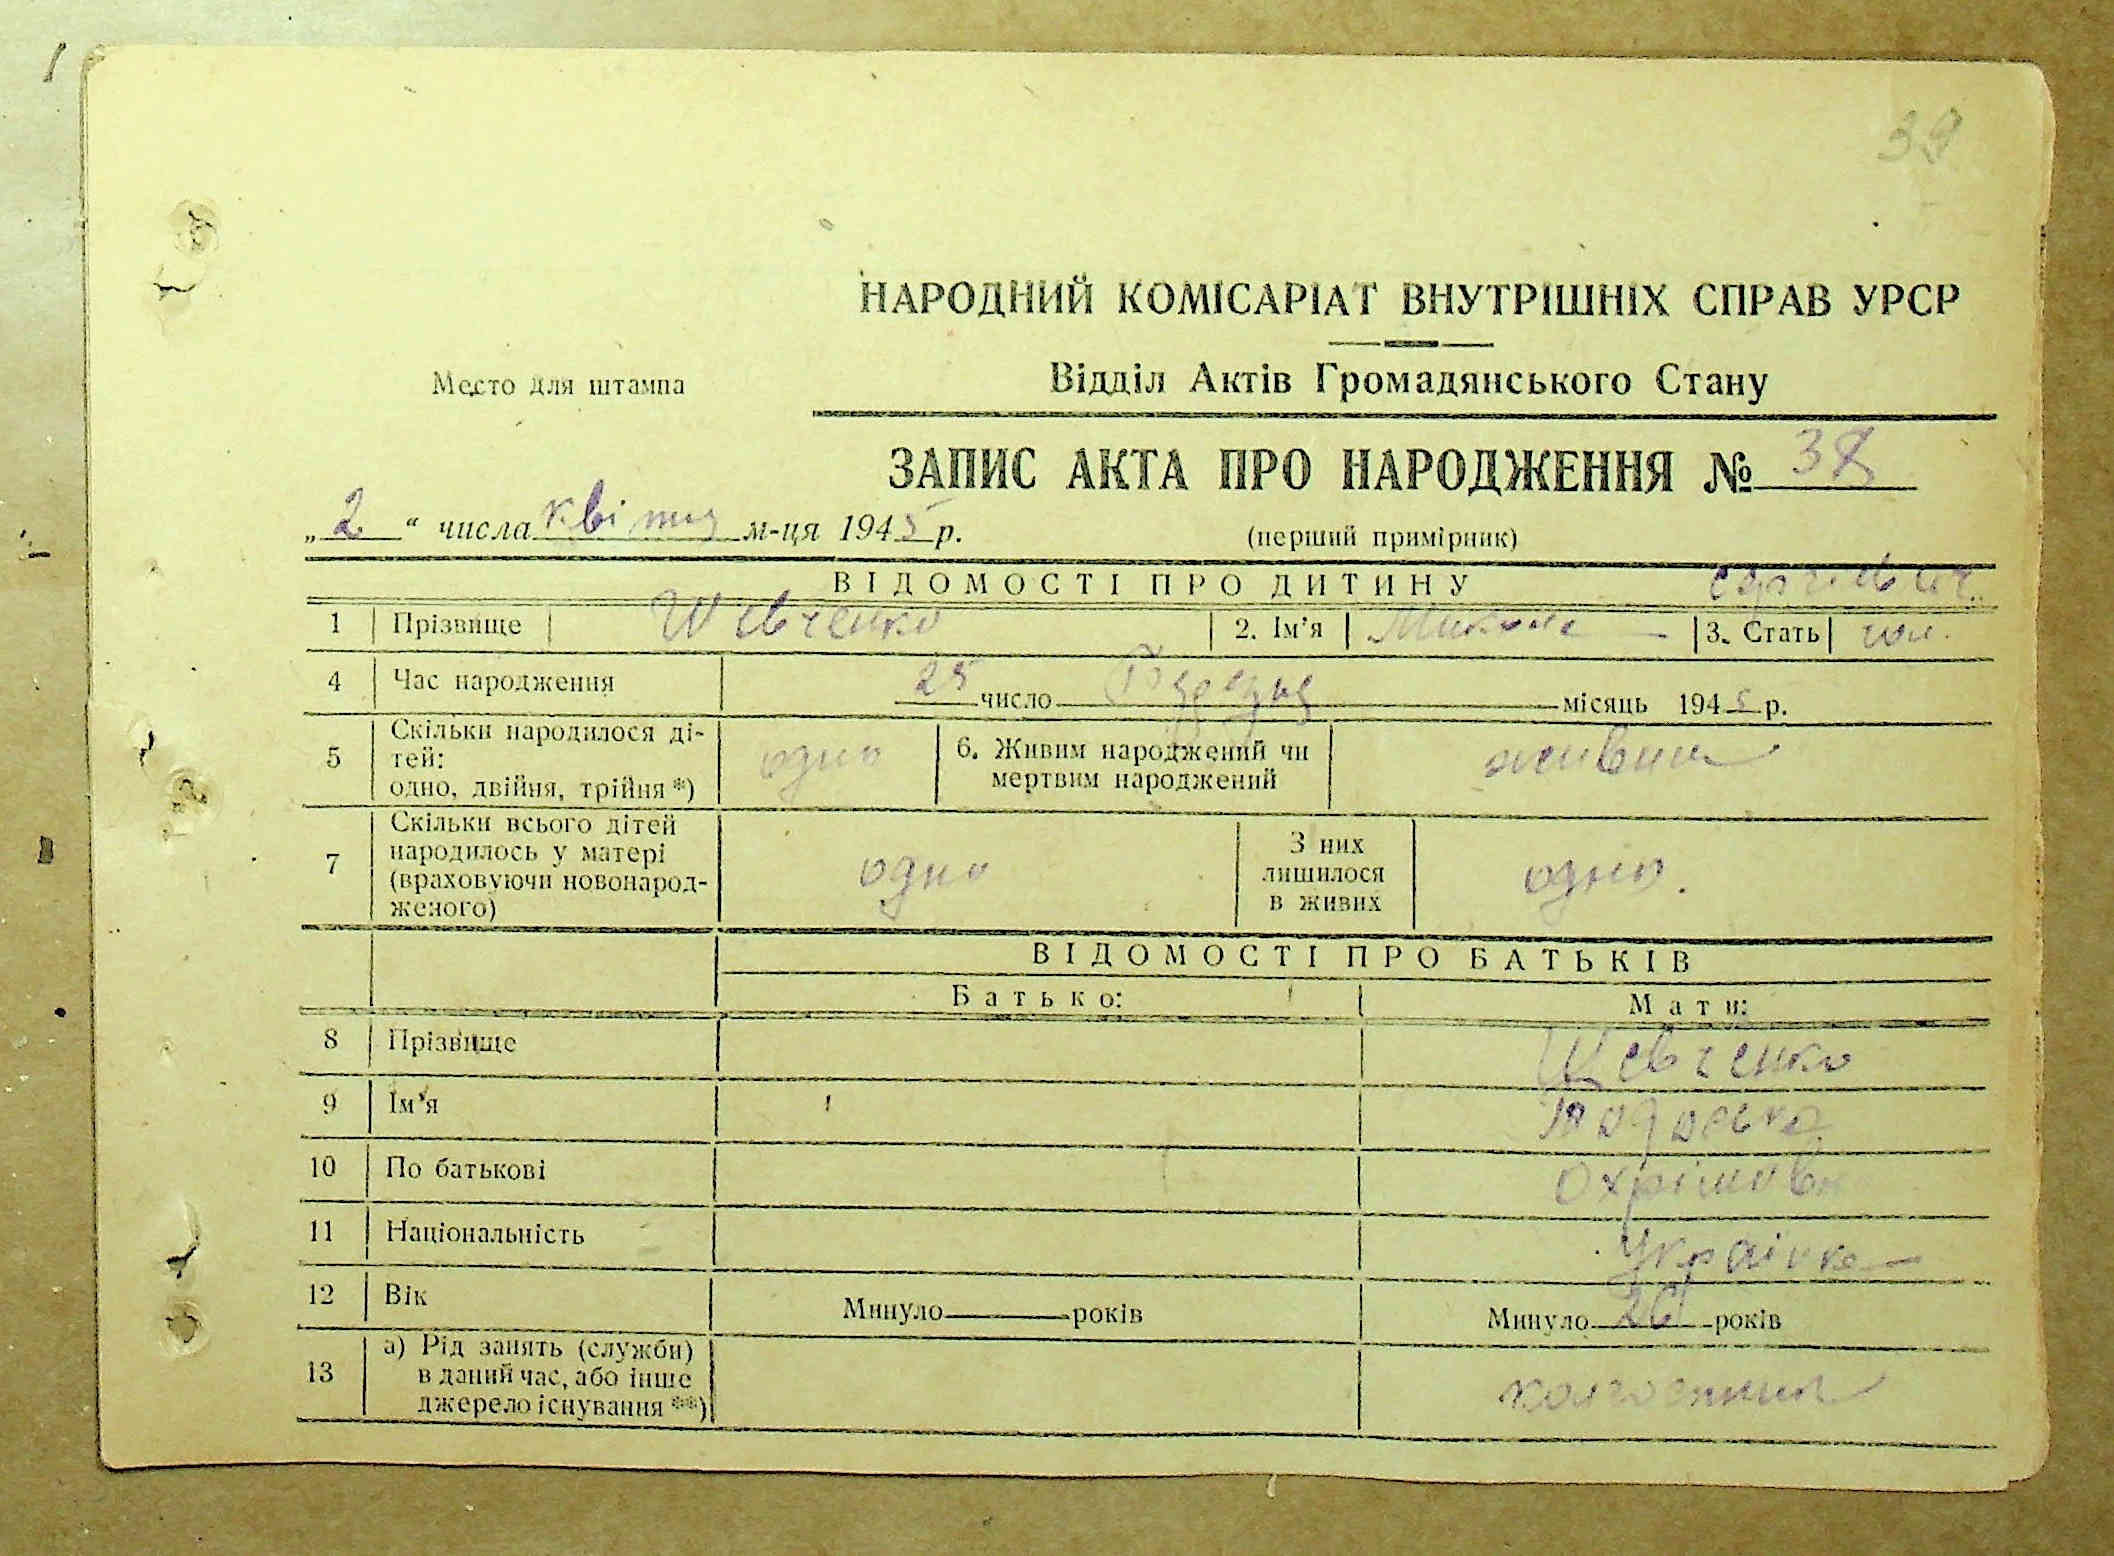 39
НАРОДНИЙ КОМІСАРІАТ ВНУТРІШНІХ СПРАВ УРСР
Место для штампа
Відділ Актів Громадянського Стану
ЗАПИС АКТА ПРО НАРОДЖЕННЯ № 38
„2“ числа квітня м-ця 1945 р.
(перший примірник)
ВІДОМОСТІ ПРО ДИТИНУ
1 Прізвище Шевченко 2. Ім'я Микола 3. Стать чол.
4 Час народження 25 число Березня місяць 1945 р.
5 Скільки народилося ді-
тей:
одно, двійня, трійня *) одно 6. Живим народжений чи
мертвим народжений живим
7 Скільки всього дітей
народилось у матері
(враховуючи новонарод-
женого) одно З них
лишилося
в живих одно.
ВІДОМОСТІ ПРО БАТЬКІВ
Батько: Мати:
8 Прізвище Шевченко
9 Ім'я Тодоська
10 По батькові Охрімовн
11 Національність Українка
12 Вік Минуло року Минуло років
13 а) Рід занять (служби)
в даний час, або інше
джерело існування **)